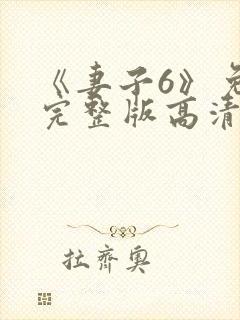 《妻子6》免
完整版高清
拉齐奥